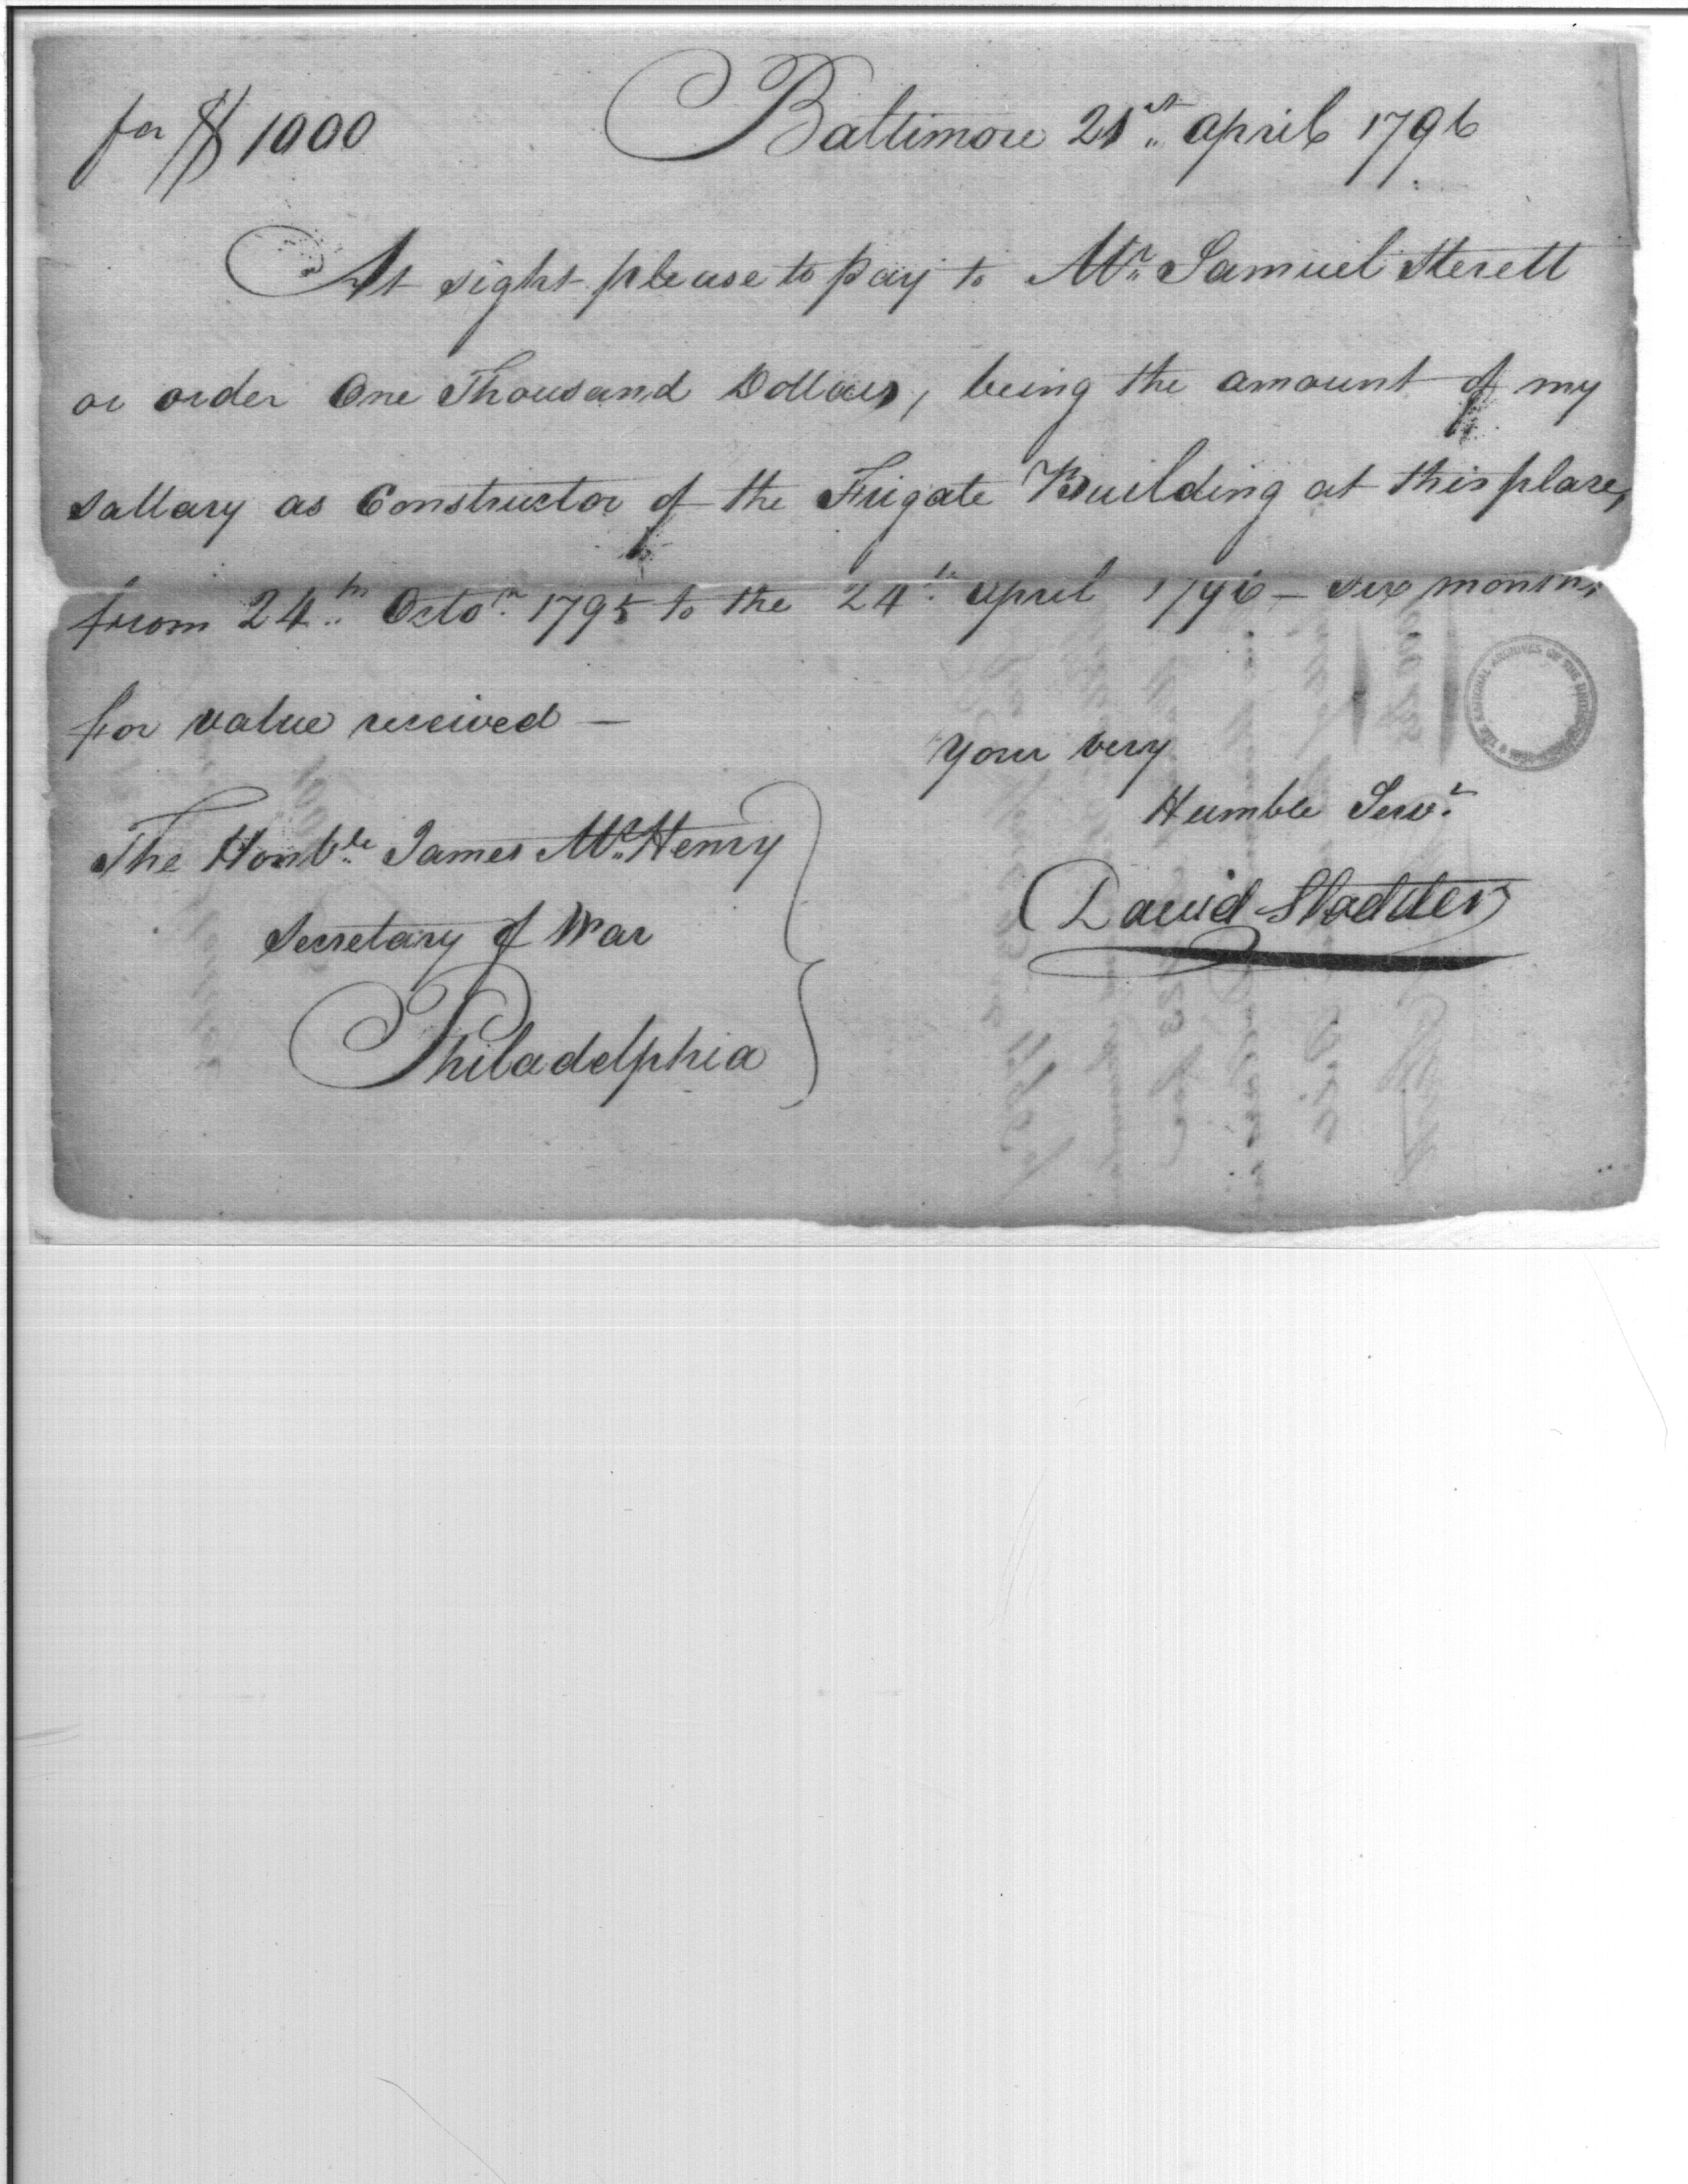 for $ 1000 Baltimore 21st april 1796
At sight please to pay to Mr. Samuel Sterett
or order One Thousand Dollars, being the amount of my
sallary as Constructor of the Frigate Building at this place,
from 24th Octor. 1795 to the 24th april 1796 – six months
for value received —
Your very
Humble Servt.
David Stodder
The Honble. James McHenry
Secretary of War
Philadelphia